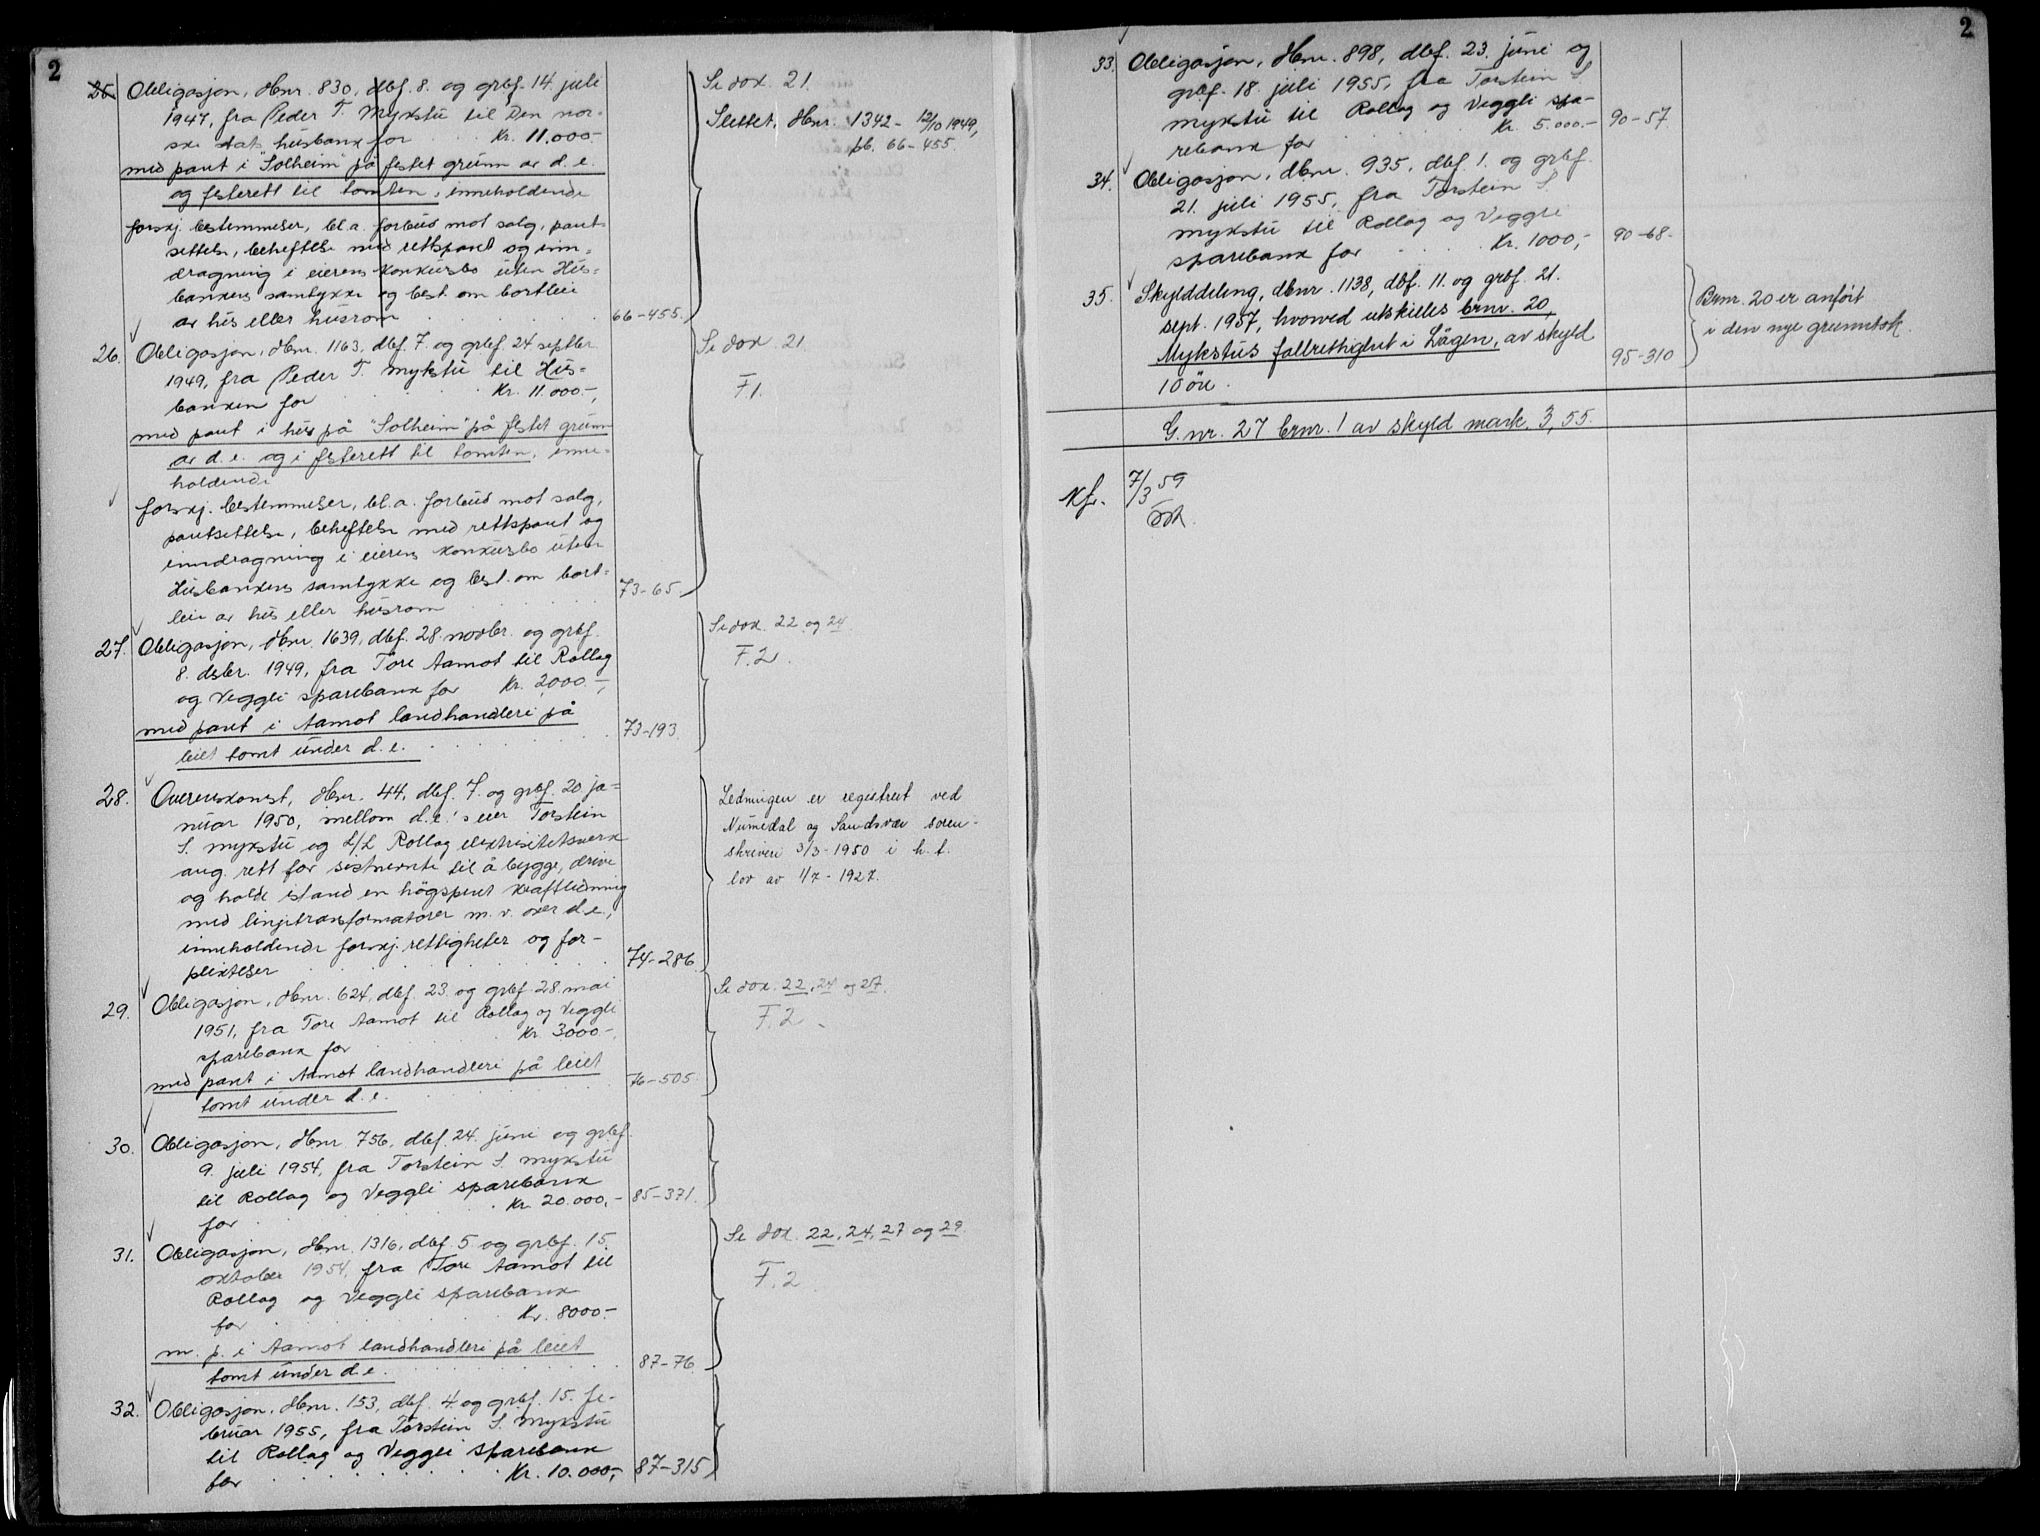 2
25. Obligasjon, dbnr. 830, dbf. 8. og grbf. 14. juli
1947, fra Peder T. Mykstu til Den nor-
ske stats husbank for Kr. 11.000.-
med pant i "Solheim" på festet grunn av d. e.
og festerett til tomten, inneholdende
forskj. bestemmelser, bl.a. forbud mot salg, pant-
settelse, beheftelse med rettspant og inn-
dragning i eierens konkursbo uten Hus-
bankens samtykke og best. om bortleie
av hus eller husrom
66-455.
Se dok. 21.
Slettet, dbnr. 1342- 12/10 1949,
pb. 66-455.
26. Obligasjon, dbnr. 1163, dbf. 7. og grbf. 24. septbr.
1949, fra Peder T. Mykstu til Hus-
banken for Kr. 11.000.-,
med pant i hus på "Solheim" på festet grunn
av d. e. og i festerett til tomten, inne-
holdende
forskj. bestemmelser, bl.a. forbud mot salg,
pantsettelse, beheftelse med rettspant og
inndragning i eierens konkursbo uten
Husbankens samtykke og best. om bort-
leie av hus eller husrom
73-65.
Se dok. 21.
F1.
27. Obligasjon, dbnr. 1639, dbf. 28. novbr. og grbf.
8. dsbr. 1949, fra Tore Aamot til Rollag
og Veggli sparebank for Kr. 2000.-,
med pant i Aamot landhandleri på
leiet tomt under d. e.
73-193.
Se dok. 22 og 24
F. 2.
28. Overenskomst, dbnr. 44, dbf. 7. og grbf. 20. ja-
nuar 1950, mellom d. e.'s eier Torstein
S. Mykstu og L/L Rollag elektrisitetsverk
ang. rett for sistnevnte til å bygge, drive
og holde istand en högspent kraftledning
med linjetransformatorer m. v. over d.e.,
inneholdende forskj. rettigheter og for-
pliktelser
74-286.
Ledningen er registrert ved
Numedal og Sandsvær soren-
skriveri 3/3-1950 i h. t.
lov av 1/7-1927.
29. Obligasjon, dbnr. 624, dbf. 23. og grbf. 28. mai
1951, fra Tore Aamot til Rollag og Veggli
sparebank for Kr. 3000.-,
med pant i Aamot landhandleri på leiet
tomt under d. e.
76-505.
Se dok. 22, 24 og 27.
F. 2.
30. Obligasjon, dbnr. 756, dbf. 24. juni og grbf.
9. juli 1954, fra Torstein S. Mykstu
til Rollag og Veggli sparebank
for Kr. 20.000,-
85-371.
31. Obligasjon, dbnr. 1316, dbf. 5. og grbf. 15.
oktober 1954, fra Tore Aamot til
Rollag og Veggli sparebank
for Kr. 8000.-
m. p. i Aamot landhandleri på leiet
tomt under d.e.
87-76.
Se dok. 22, 24, 27 og 29.
F. 2
32. Obligasjon, dbnr. 153, dbf. 4. og grbf. 15. fe-
bruar 1955, fra Torstein S. Mykstu
til Rollag og Veggli sparebank
for Kr. 10.000,-
87-315
2
33. Obligasjon, dbnr. 898, dbf. 23. juni og
grbf. 18. juli 1955, fra Torstein S.
Mykstu til Rollag og Veggli spa-
rebank for Kr. 5.000.-
90-57.
34. Obligasjon, dbnr. 935, dbf. 1. og grbf.
21. juli 1955, fra Torstein S.
Mykstu til Rollag og Veggli
sparebank for Kr. 1000,-
90-68-
35. Skylddeling, dbnr. 1138, dbf. 11. og grbf. 21.
sept. 1957, hvorved utskilles brnr. 20,
Mykstus fallrettighet i Lågen, av skyld
10 öre.
95-310
Brnr. 20 er anfört
i den nye grunnbok.
G. nr. 27 brnr. 1 av skyld mark. 3,55.
Kfr. 7/3 59